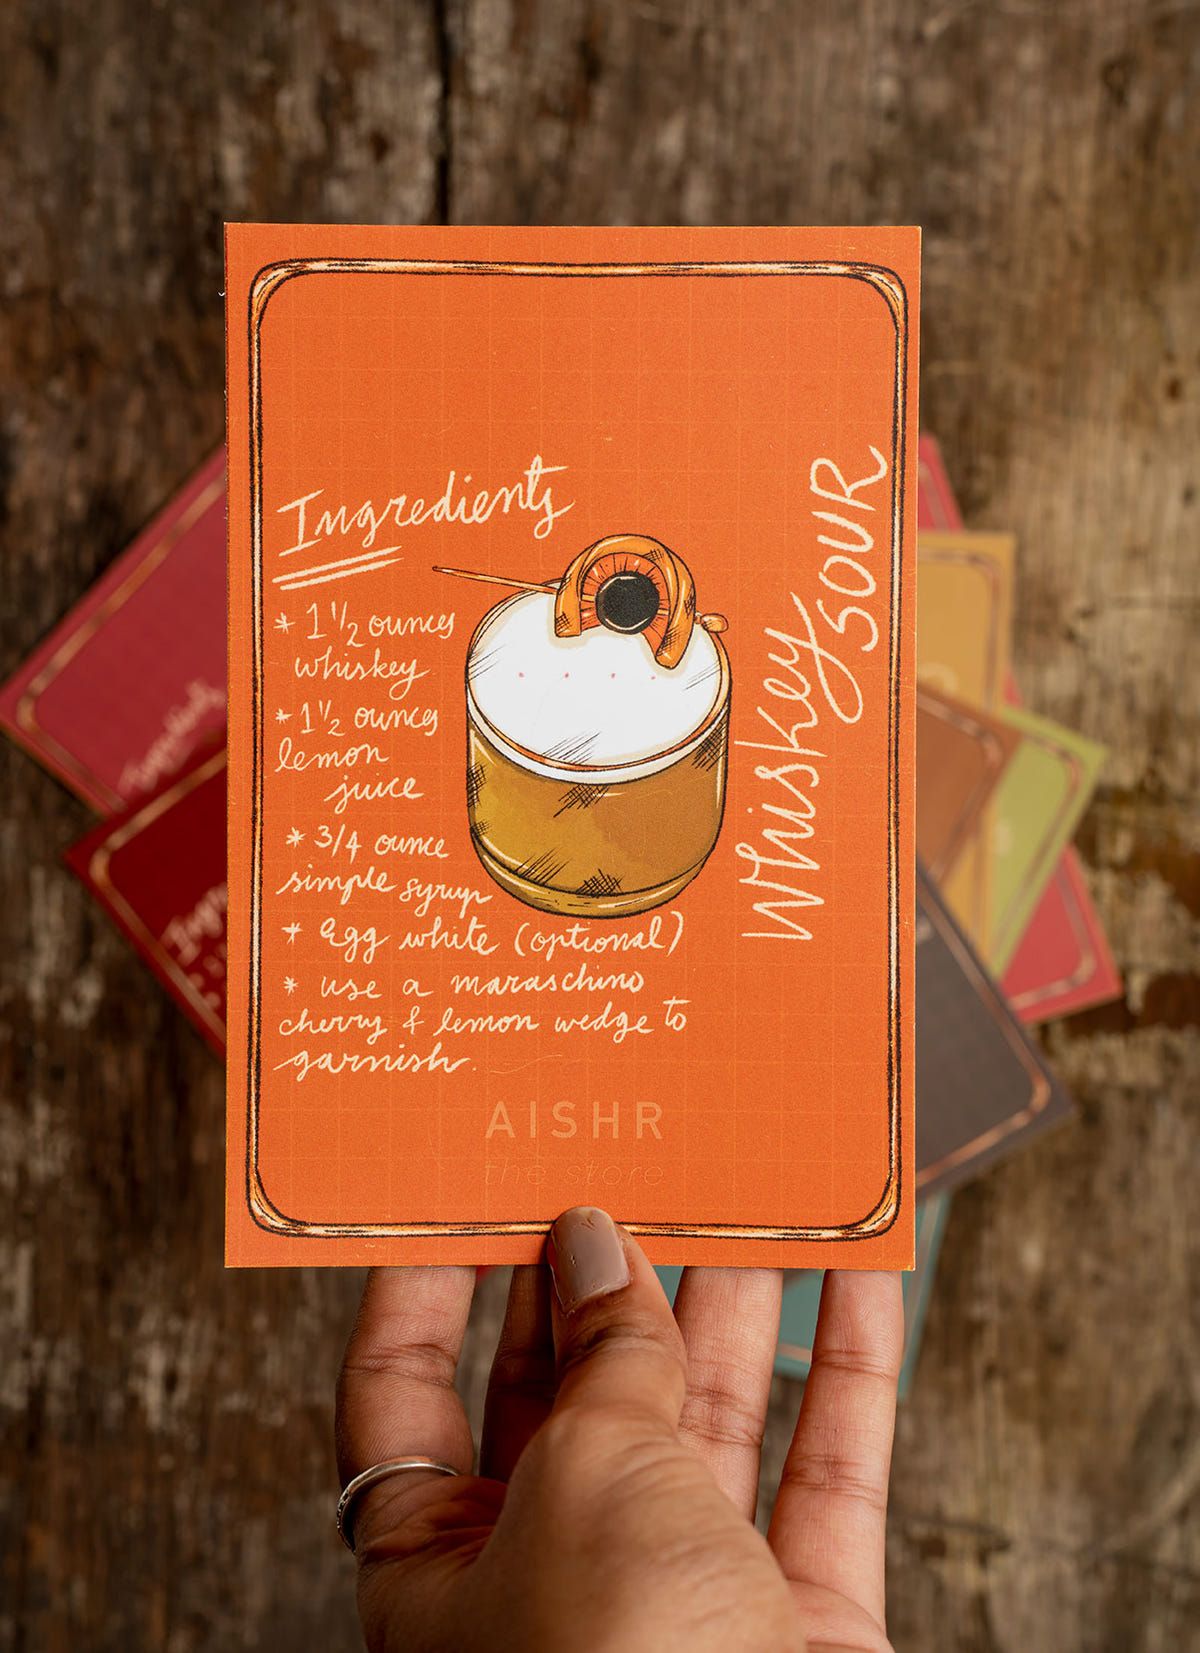 Ingredients
* 1 1/2 ounces
whiskey
* 1 1/2 ounces
lemon
juice
* 3/4 ounce
simple syrup
* Egg white (optional)
* use a maraschino
cherry & lemon wedge to
garnish.
Whiskey
SOUR
AISHR
the store